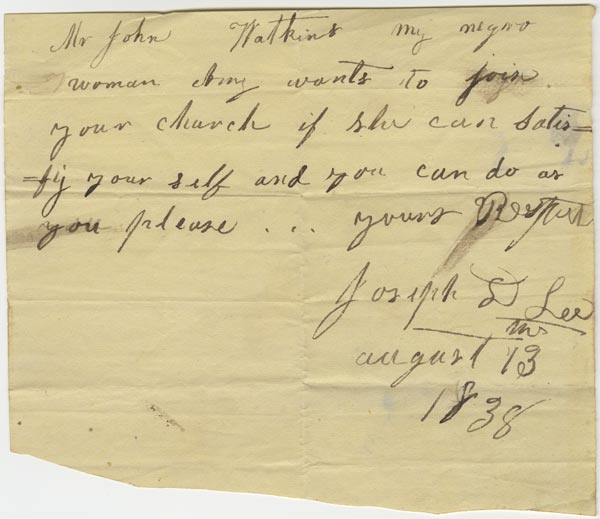 Mr John Watkins my negro
woman Amy wants to join
your church if she can satis=
=fy your self and you can do as
you please ... yours Respect
Joseph D Lee
august 13
1838